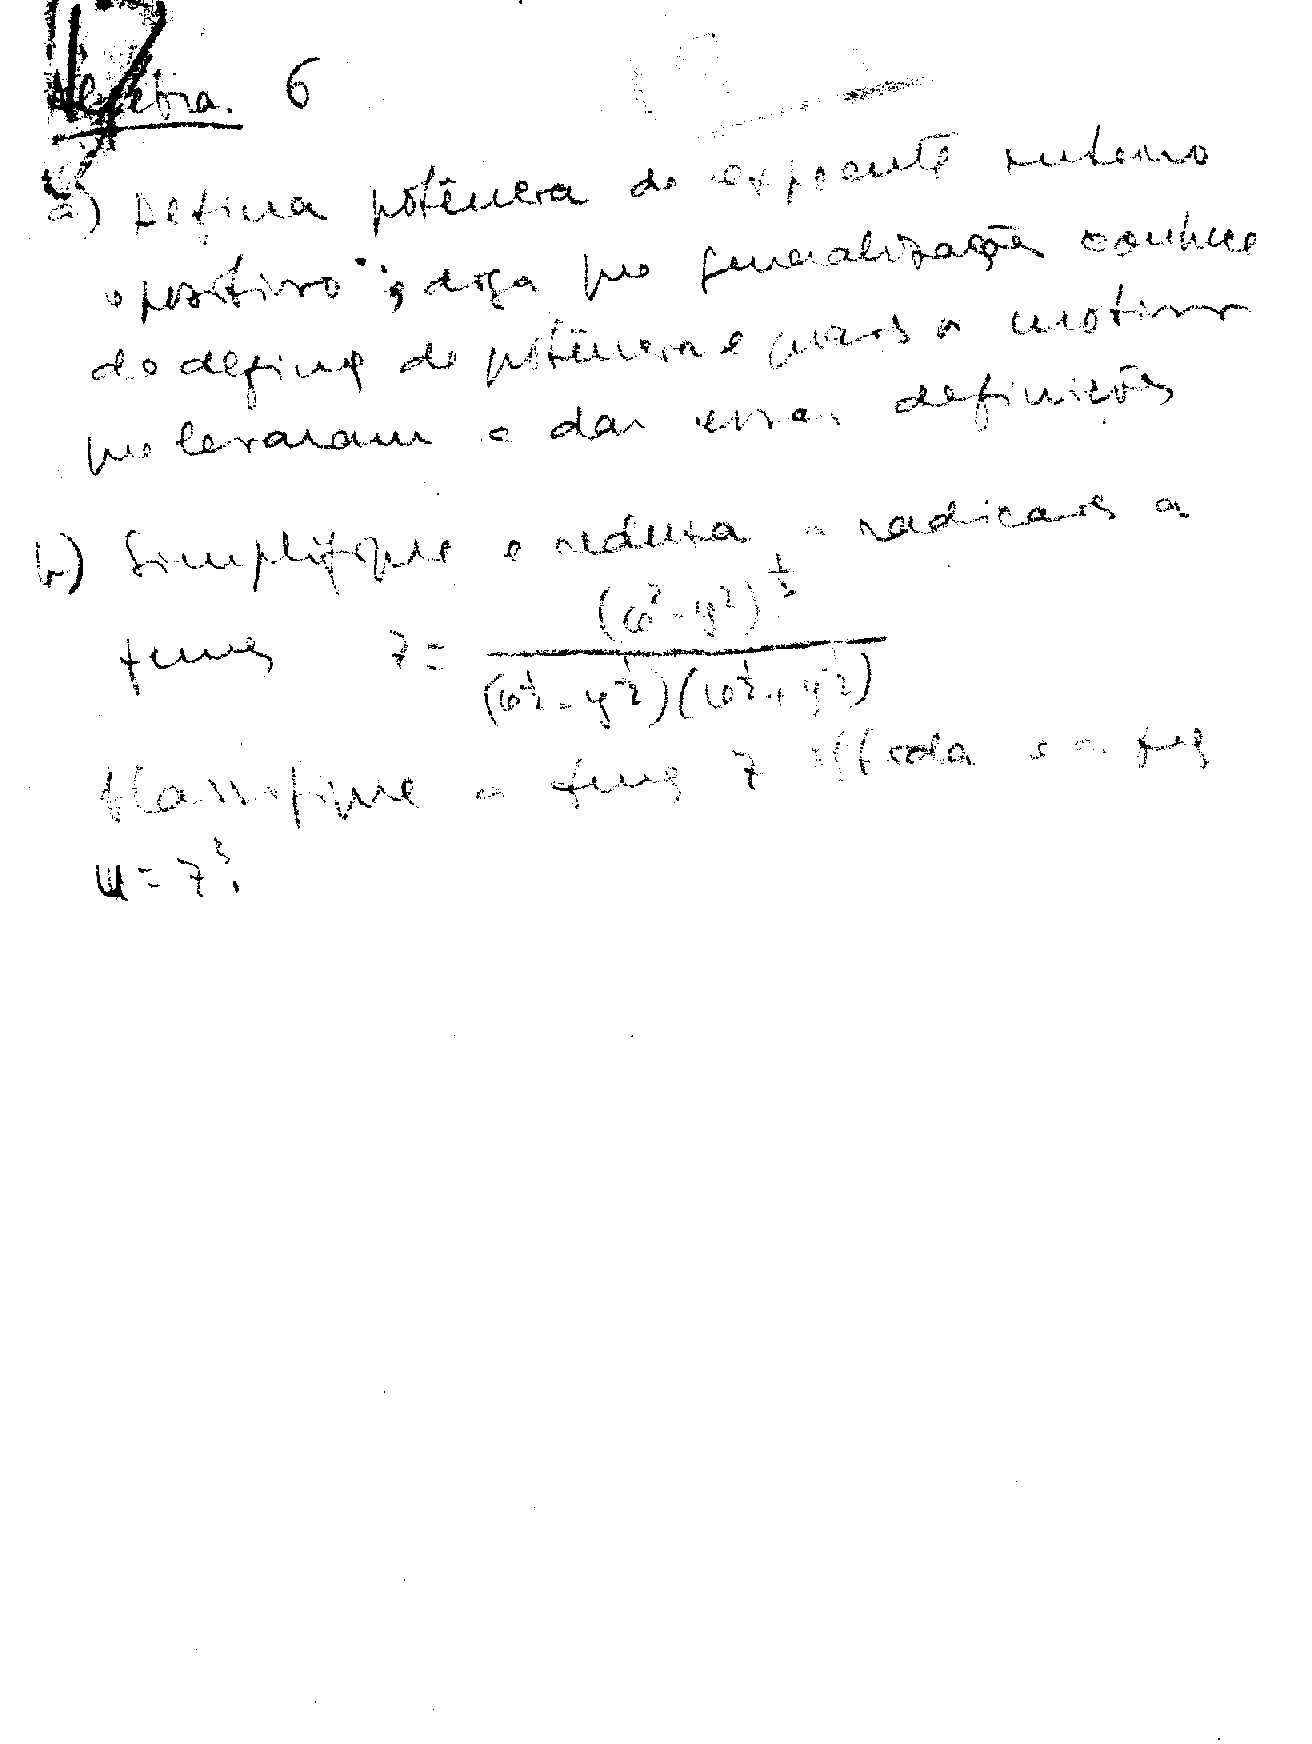 Algebra. 6
a) Defina potência de expoente inteiro
e positivo; diga que generalizações conhece
da definç de potência e quais os motivos
que levaram a dar essas definições
b) Simplifique e reduza a radicais a
funç z = (x² - y²)^{1/3} / (x^{1/2} - y^{1/2})(x^{1/2} + y^{1/2})
Classifique a funç z obtida e a funç
u = z³.